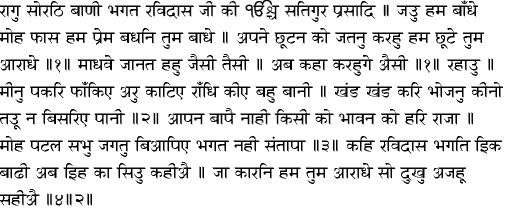 रागु सोरठि बाणी भगत रविदास जी की ੴ सतिगुर प्रसादि ॥ जउ हम बाँधे
मोह फास हम प्रेम बधनि तुम बाधे ॥ अपने छूटन को जतनु करहु हम छूटे तुम
आराधे ॥१॥ माधवे जानत हहु जैसी तैसी ॥ अब कहा करहुगे अैसी ॥१॥ रहाउ ॥
मीनु पकरि फाँकिए अरु काटिए राँधि कीए बहु बानी ॥ खंड खंड करि भोजनु कीनो
तऊ न बिसरिए पानी ॥२॥ आपन बापै नाही किसी को भावन को हरि राजा ॥
मोह पटल सभु जगतु बिआपिए भगत नही संतापा ॥३॥ कहि रविदास भगति इिक
बाढी अब इिह का सिउ कहीअै ॥ जा कारनि हम तुम आराधे सो दुखु अजहू
सहीअै ॥४॥२॥